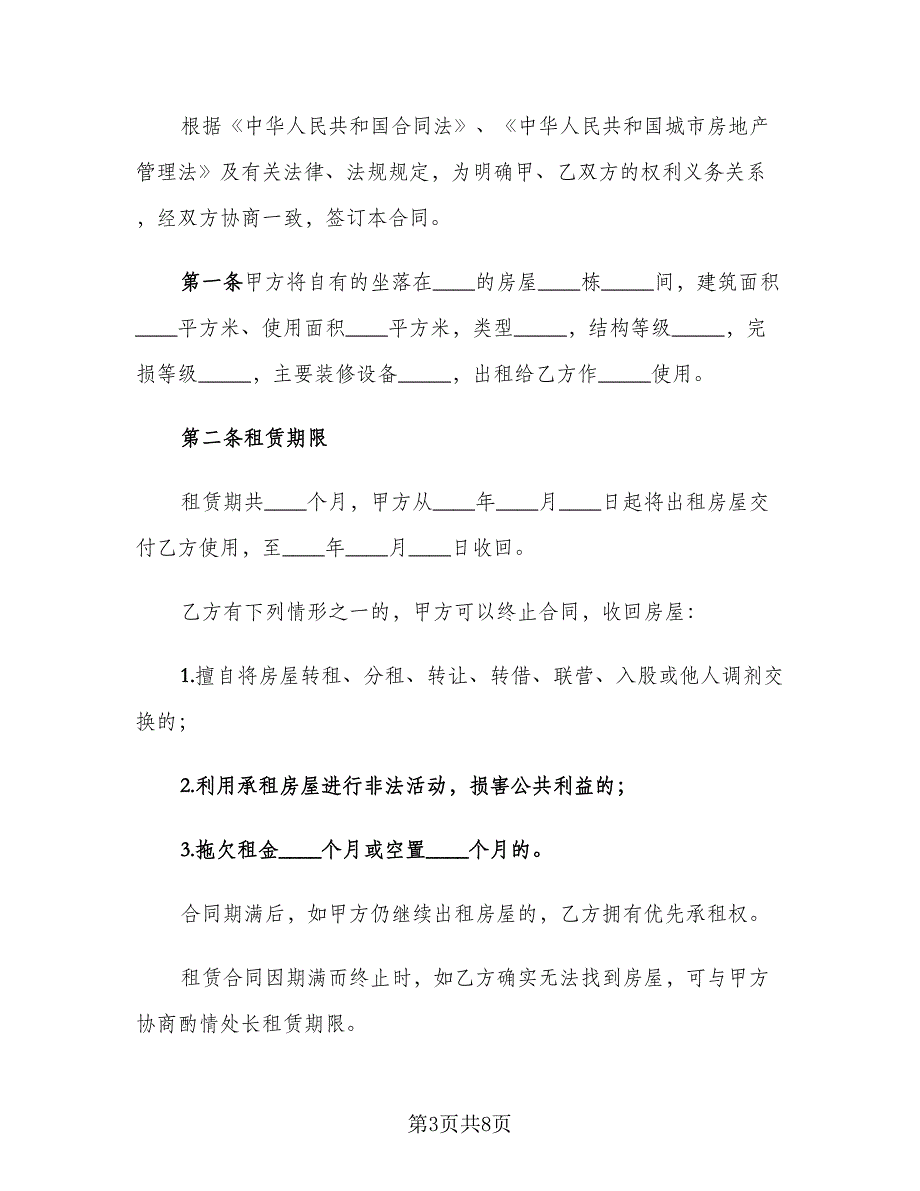 根据《中华人民共和国合同法》、《中华人民共和国城市房地产
管理法》及有关法律、法规规定，为明确甲、乙双方的权利义务关系
，经双方协商一致，签订本合同。
第一条甲方将自有的坐落在____的房屋____栋_____间，建筑面积
____平方米、使用面积____平方米，类型_____，结构等级_____，完
损等级_____，主要装修设备_____，出租给乙方作_____使用。
第二条租赁期限
租赁期共____个月，甲方从____年____月____日起将出租房屋交
付乙方使用，至____年____月____日收回。
乙方有下列情形之一的，甲方可以终止合同，收回房屋：
1.擅自将房屋转租、分租、转让、转借、联营、入股或他人调剂交
换的；
2.利用承租房屋进行非法活动，损害公共利益的；
3.拖欠租金____个月或空置____个月的。
合同期满后，如甲方仍继续出租房屋的，乙方拥有优先承租权。
租赁合同因期满而终止时，如乙方确实无法找到房屋，可与甲方
协商酌情处长租赁期限。
第3页共8页